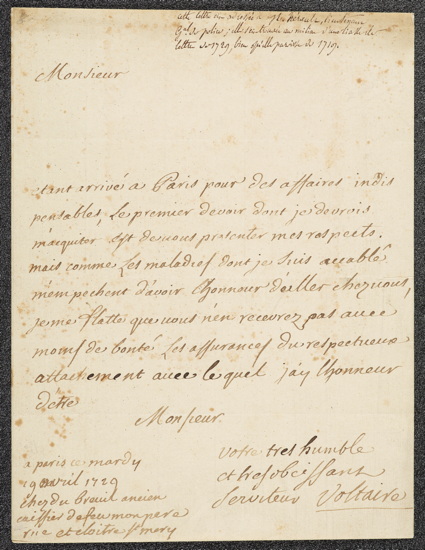 cette lettre est adressée à Mr hérault, lieutenant
Gal de police; elle se trouve au milieu d'une liasse de
lettres de 1729, bien qu'elle paraisse de 1719.
Monsieur
étant arrivé a Paris pour des affaires indis
pensables, le premier devoir dont je devrois
m'aquiter est de vous presenter mes respects.
mais comme les maladies dont je suis accablé
m'empechent d'avoir l'honneur d'aller chez vous,
je me flatte que vous n'en recevrez pas avec
moins de bonté les assurances du respectueux
attachement avec le quel j'ay l'honneur
d'etre
Monsieur
votre tres humble
et tres obeissant
serviteur Voltaire
a paris ce mardy
19 avril 1729
chez du breuil ancien
caissier de feu mon pere
rüe et cloitre st mery